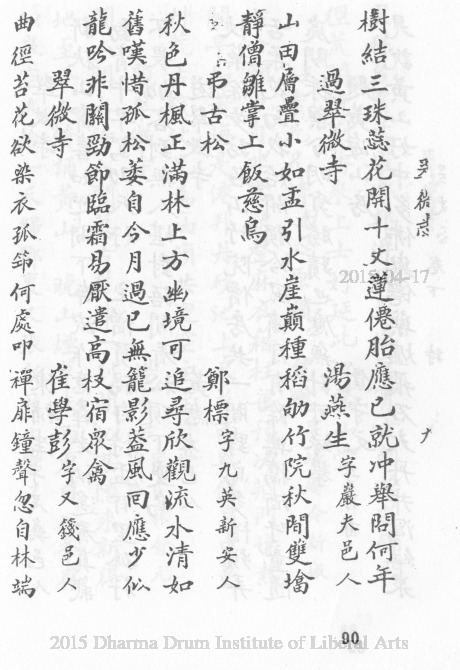 樹結三珠蕊花開十丈蓮僊胎應已就冲舉問何年
過翠微寺 湯燕生字巖夫邑人
山田層疊小如盂引水崖巔種稻劬竹院秋閒雙墖
靜僧雛掌上飯慈烏
弔古松 鄭標字九英新安人
秋色丹楓正滿林上方幽境可追尋欣觀流水清如
舊嘆惜孤松萎自今月過已無籠影葢風回應少似
龍吟非關勁節臨霜易厭遣高枝宿眾禽
翠微寺 崔學彭字又籛邑人
曲徑苔花欲染衣孤筇何處叩禪扉鐘聲忽自林端
90
2015 Dharma Drum Institute of Liberal Arts